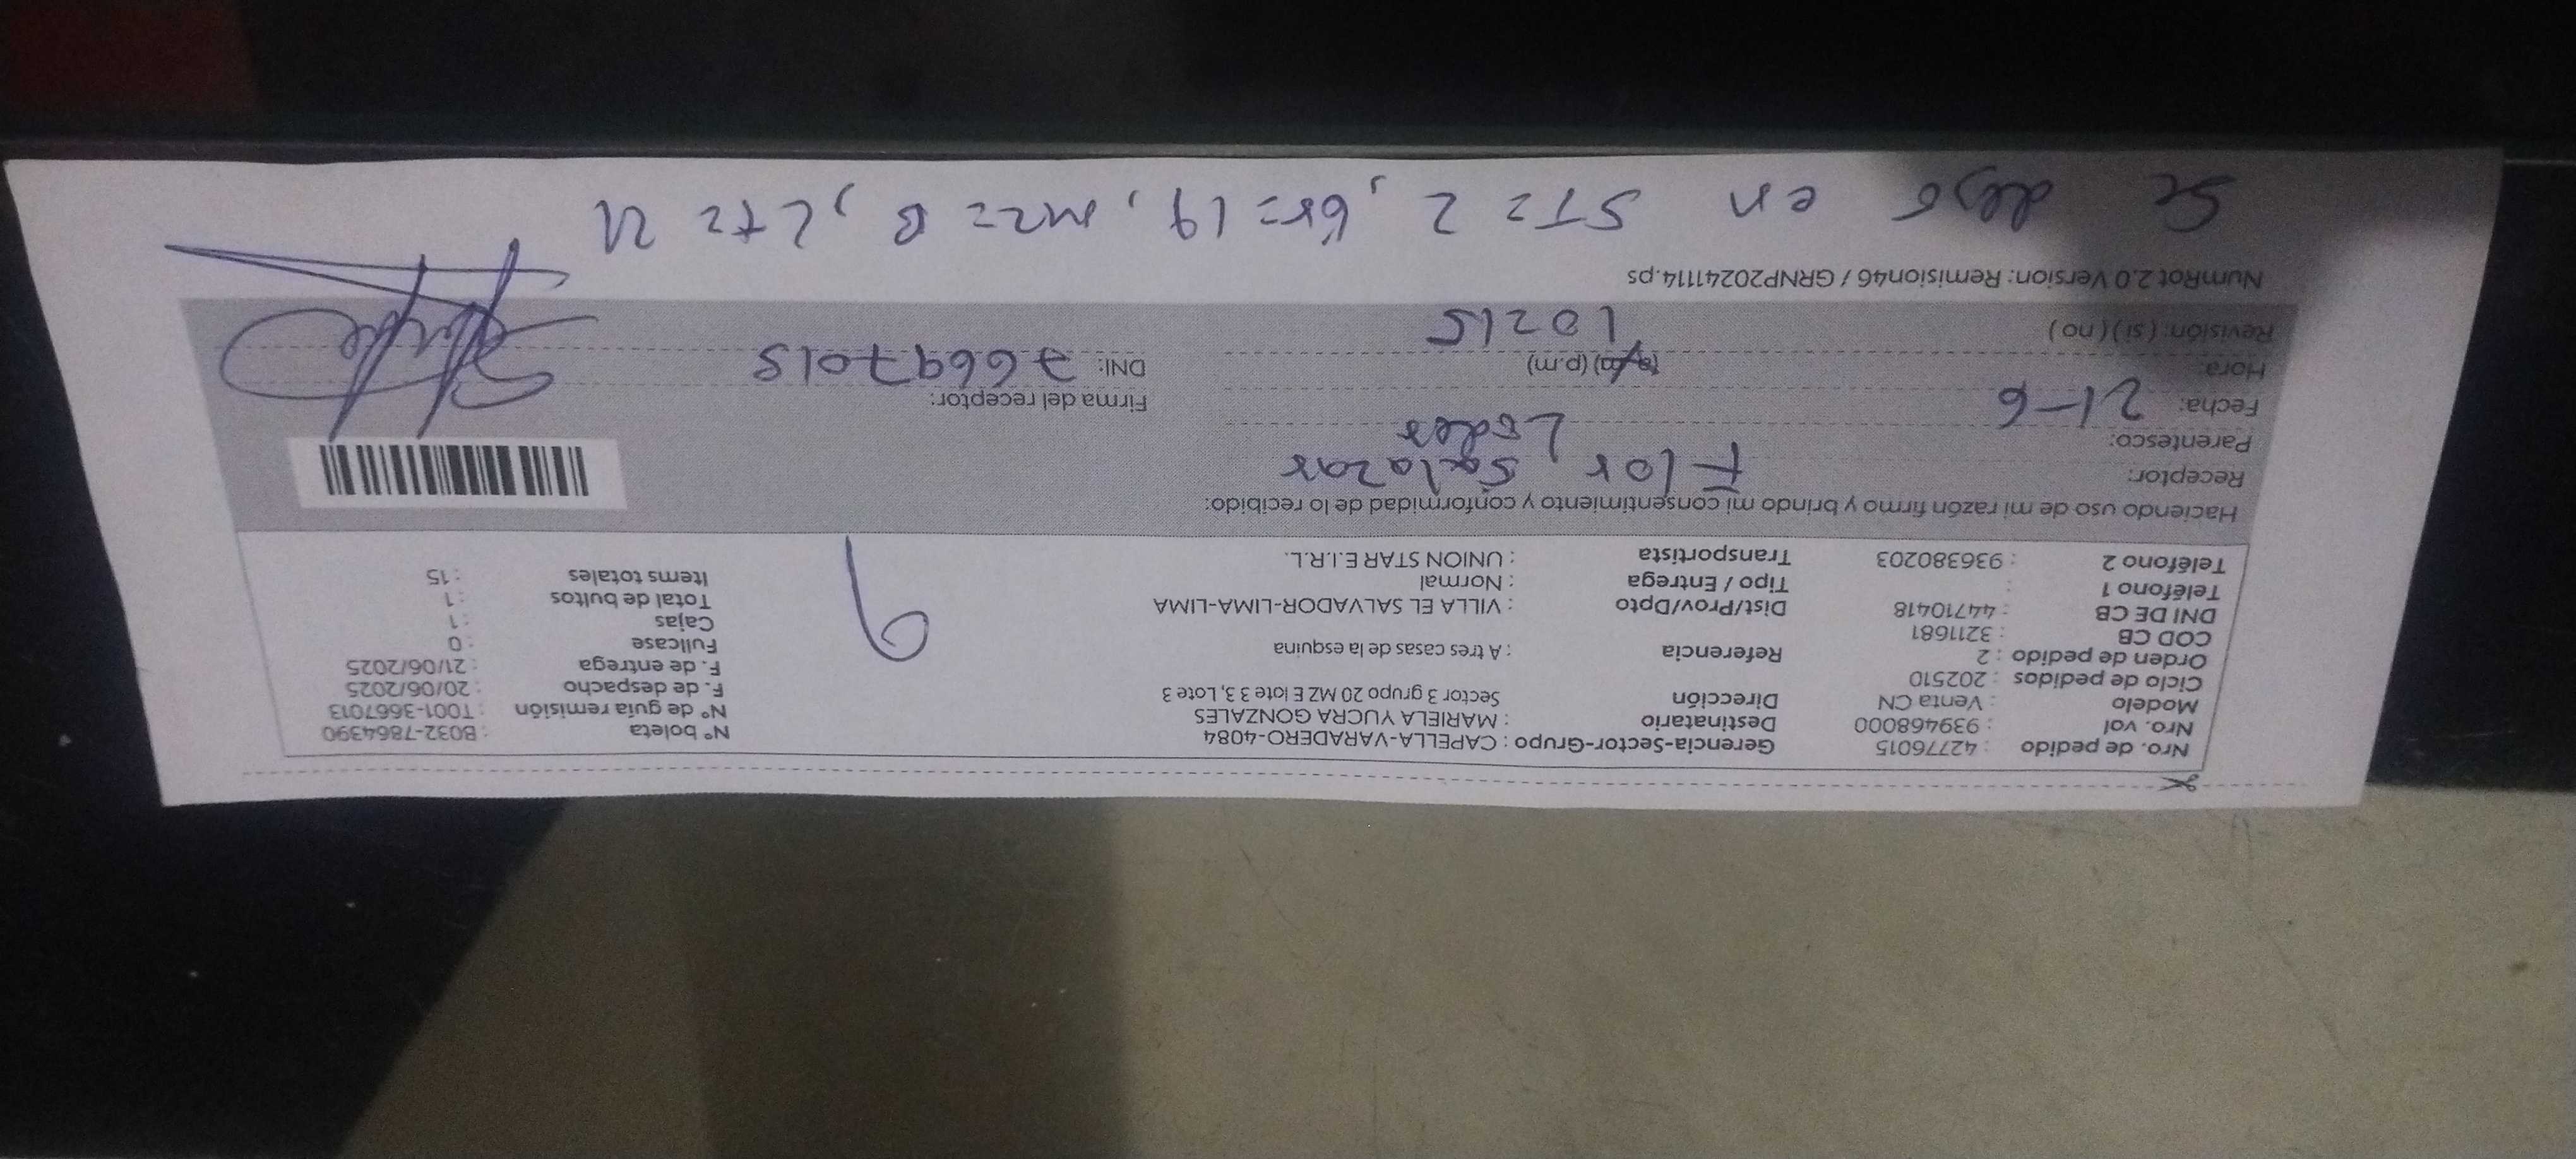 Nro. de pedido : 42776015
Nro. val : 939468000
Modelo : Venta CN
Ciclo de pedidos : 202510
Orden de pedido : 2
COD CB : 3211681
DNI DE CB : 44710418
Teléfono 1 :
Teléfono 2 : 936380203
Gerencia-Sector-Grupo : CAPELLA-VARADERO-4084
Destinatario : MARIELA YUCRA GONZALES
Dirección Sector 3 grupo 20 MZ E lote 3 3, Lote 3
Referencia : A tres casas de la esquina
Dist/Prov/Dpto : VILLA EL SALVADOR-LIMA-LIMA
Tipo / Entrega : Normal
Transportista : UNION STAR E.I.R.L.
N° boleta : B032-7864390
N° de guía remisión : T001-3667013
F. de despacho : 20/06/2025
F. de entrega : 21/06/2025
Fullcase : 0
Cajas : 1
Total de bultos : 1
Items totales : 15
9
Haciendo uso de mi razón firmo y brindo mi consentimiento y conformidad de lo recibido:
Receptor: Flor Salazar
Parentesco: Lider
Fecha: 21-6
Hora: (a.m) (p.m)
Revisión: ( si ) ( no ) 10215
Firma del receptor:
DNI: 76697015
NumRot 2.0 Version: Remision46 / GRNP20241114.ps
Se dejó en ST= 2, Gr= 19, MZ= B, LT= 21